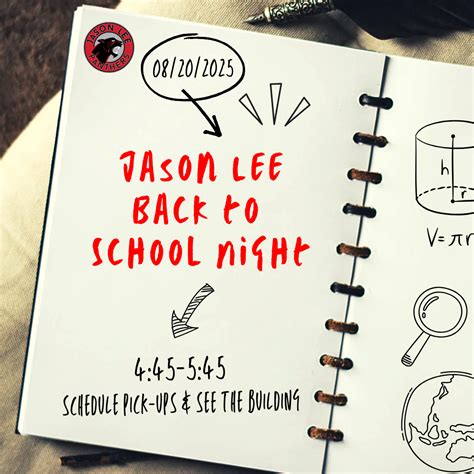 JASON LEE
PANTHERS
08/20/2025
JASON LEE
BACK to
SCHOOL NIGHT
4:45-5:45
SCHEDULE PICK-UPS & SEE THE BUILDING
h
r
V=πr